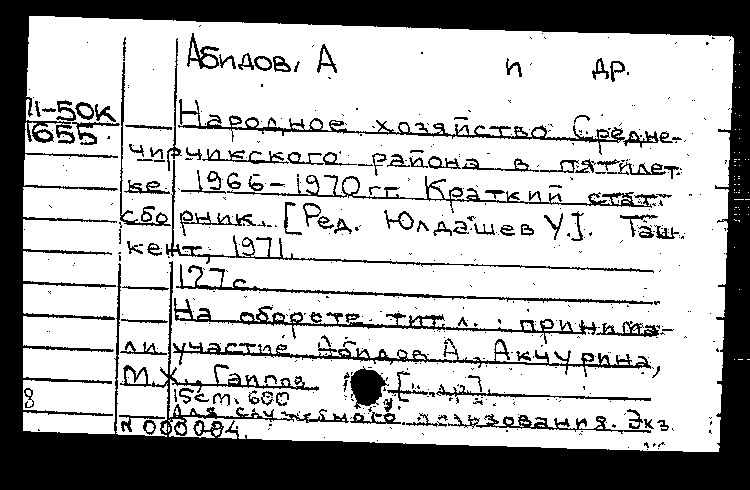 Абидов, А и др.
71-50К
1655
Народное хозяйство Средне-
чирчикского района в пятилет
ке 1966-1970 гг. Краткий стат.
сборник. [Ред. Юлдашев У.]. Таш-
кент, 1971.
127 с.
На обороте тит. л.: принима-
ли участие Абидов А., Акчурина,
М.Х., Гаипов [и др].
15 ст. 600
8
Для служебного пользования. Экз.
N 000004.